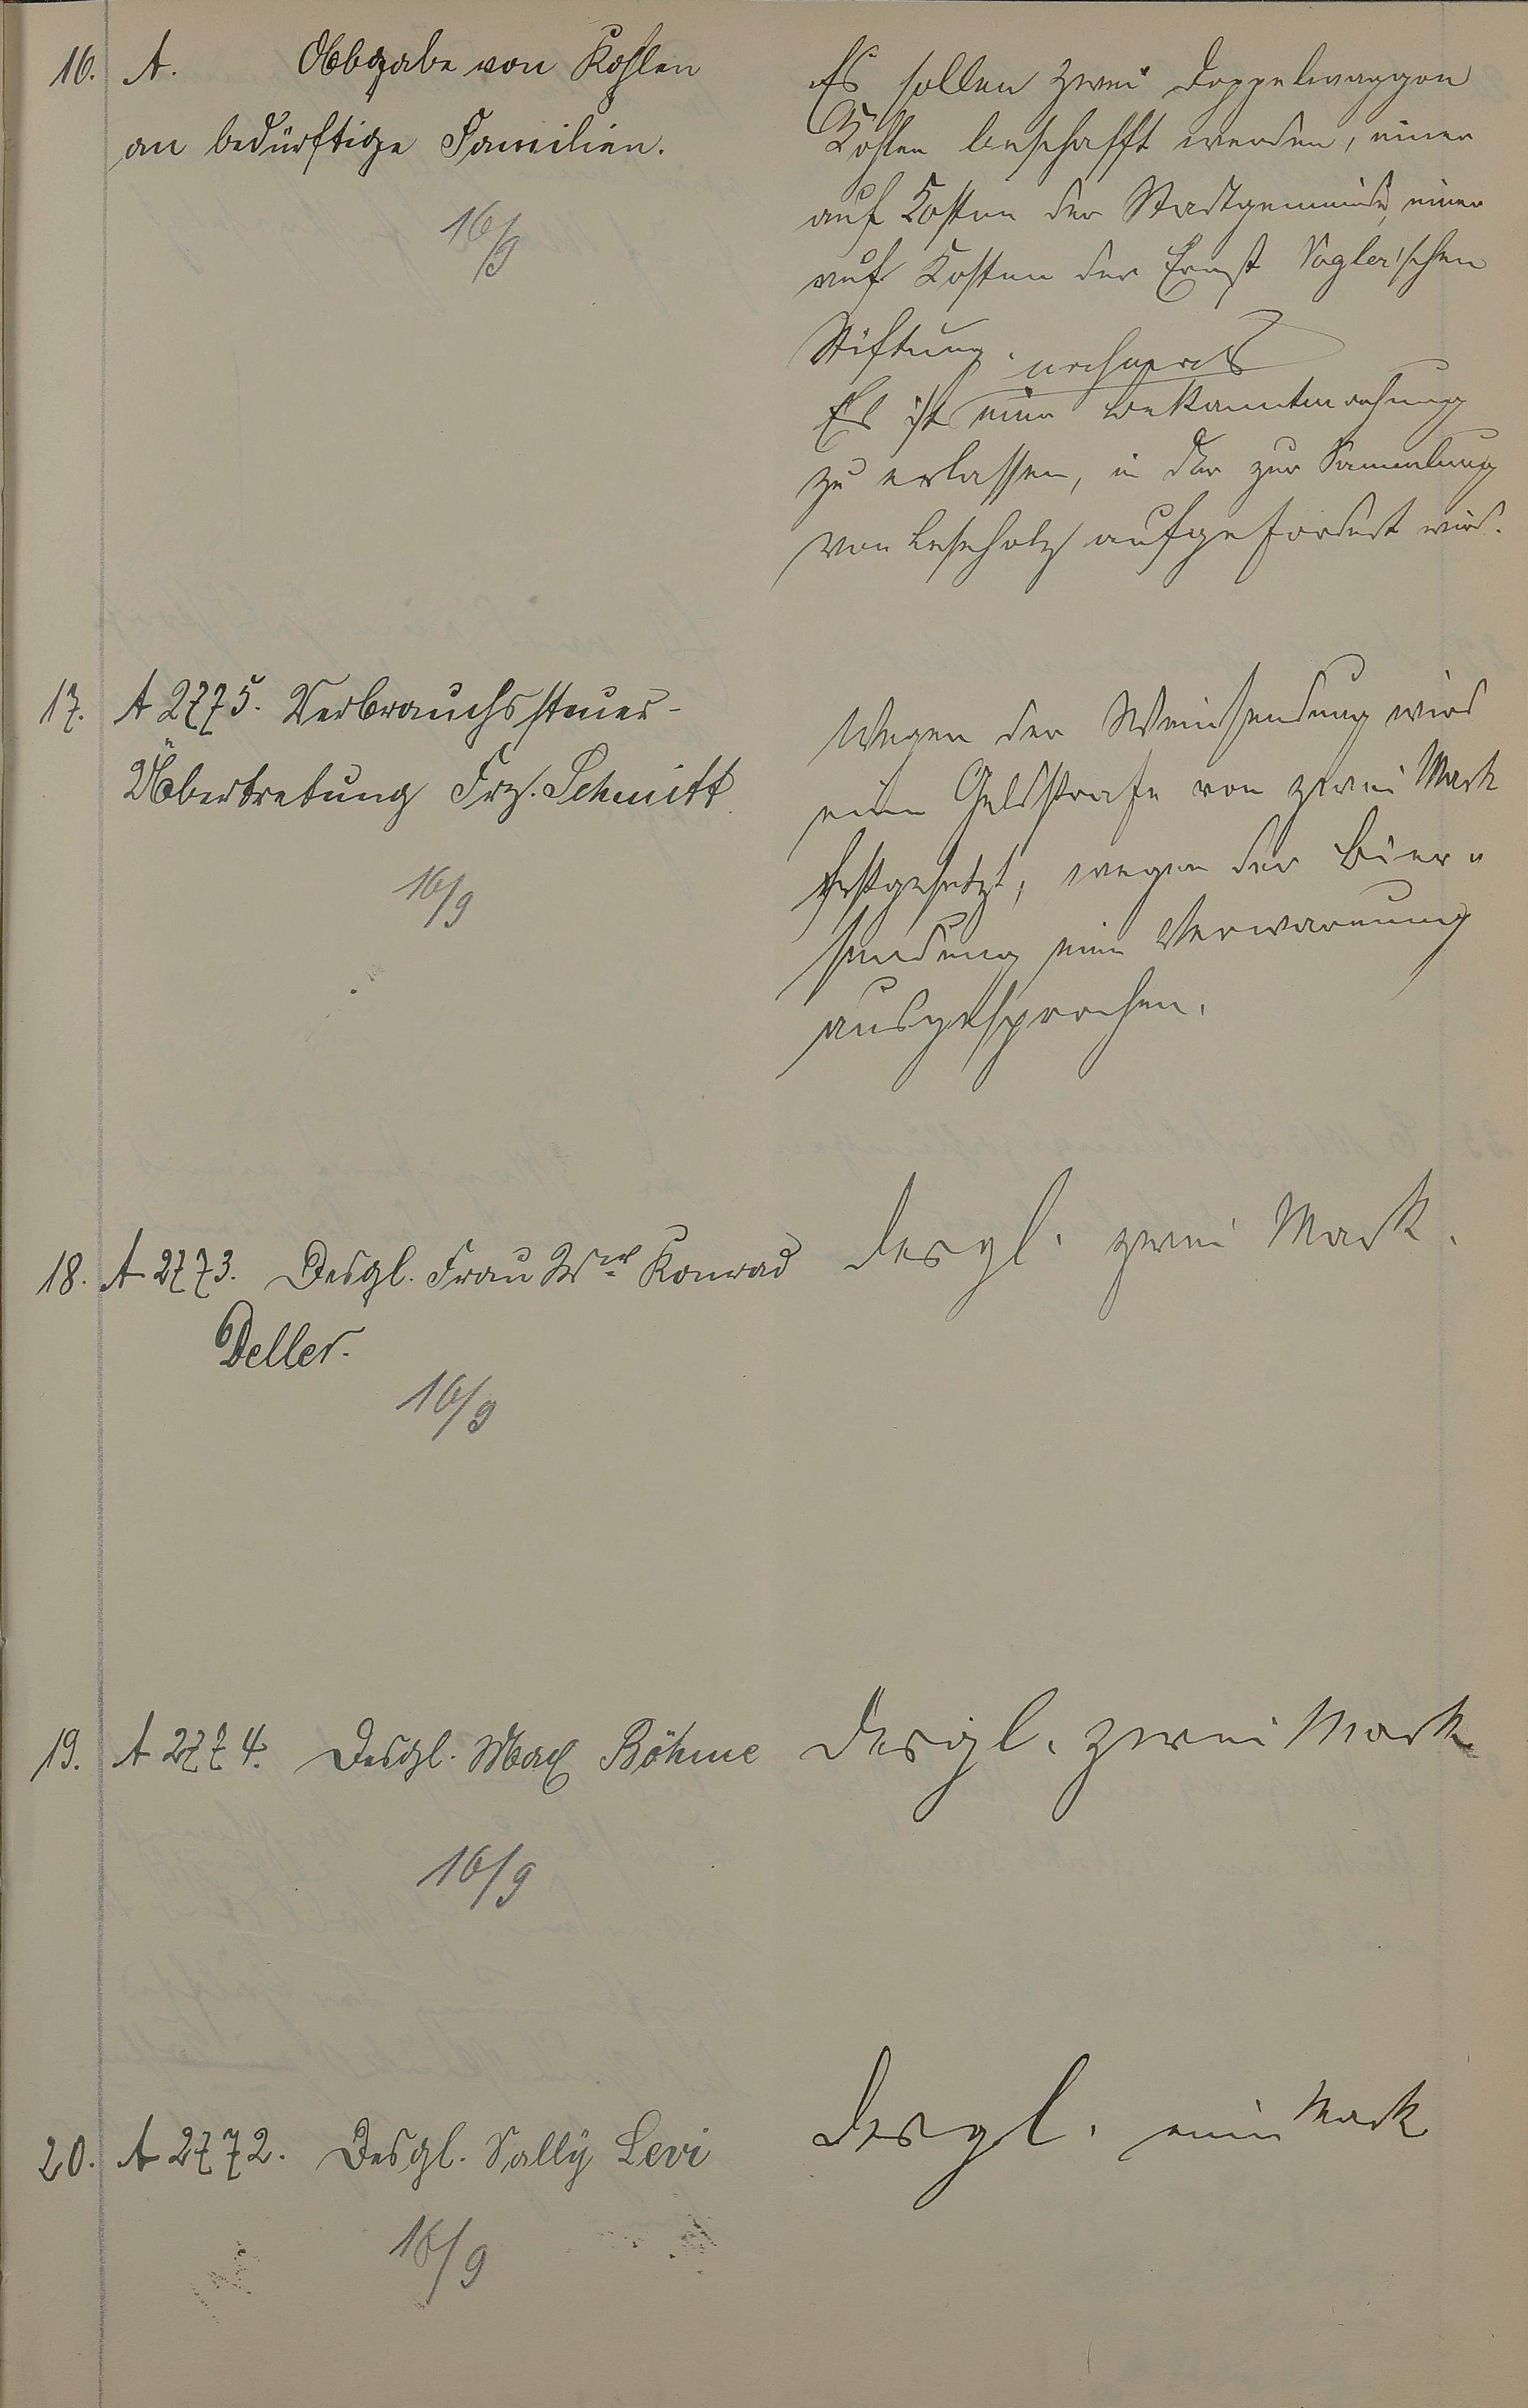 16. A. Abgabe von Kohlen
an bedürftige Familien.
16/9
Es sollen zwei Doppelwaggon
Kohlen beschafft werden, einer
auf Kosten der Stadtgemeinde, einer
auf Kosten der Ernst Vogler'schen
Stiftung.
Es ist eine Bekanntmachung
zu erlassen, in der zur Sammlung
von Leseholz aufgefordert wird.
17. A 2775. Verbrauchssteuer-
Übertretung Frz. Schmitt.
16/9
Wegen der Weinsendung wird
eine Geldstrafe von zwei Mark
festgesetzt, wegen der Bier-
sendung eine Verwarnung
ausgesprochen.
18. A 2773. Desgl. Frau Wwe Konrad
Deller.
16/9
Desgl. zwei Mark.
19. A 2774. Desgl. Max Böhme
16/9
Desgl. zwei Mark.
20. A 2772. Desgl. Sally Levi
16/9
Desgl. eine Mark